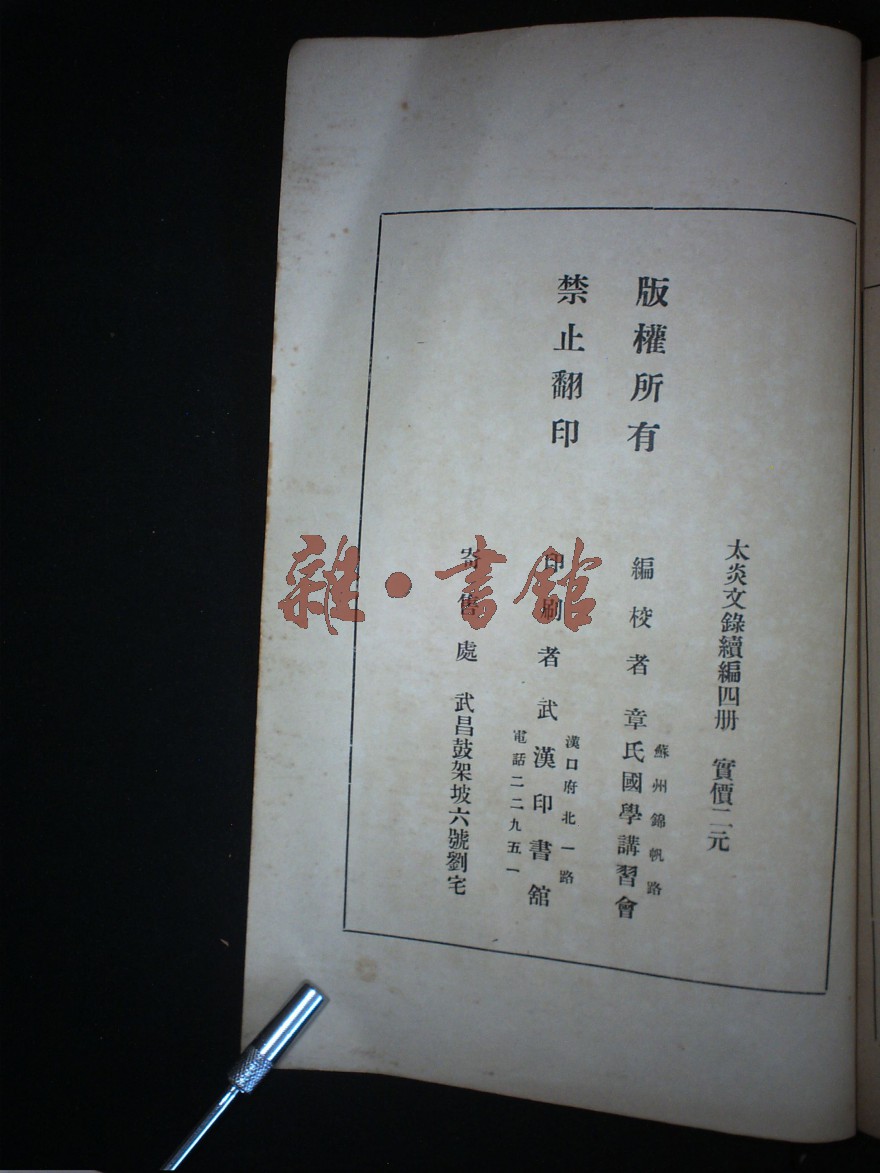 版權所有
禁止翻印
太炎文錄續編四册 實價二元
編校者 章氏國學講習會
蘇州錦帆路
印刷者 武漢印書舘
漢口府北一路
電話二二九五一
寄售處 武昌鼓架坡六號劉宅
雜·書舘